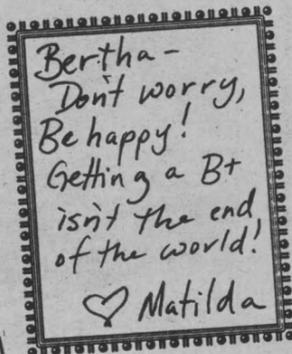 Bertha -
Don't worry,
Be happy!
Getting a B+
isn't the end
of the world!
♡ Matilda